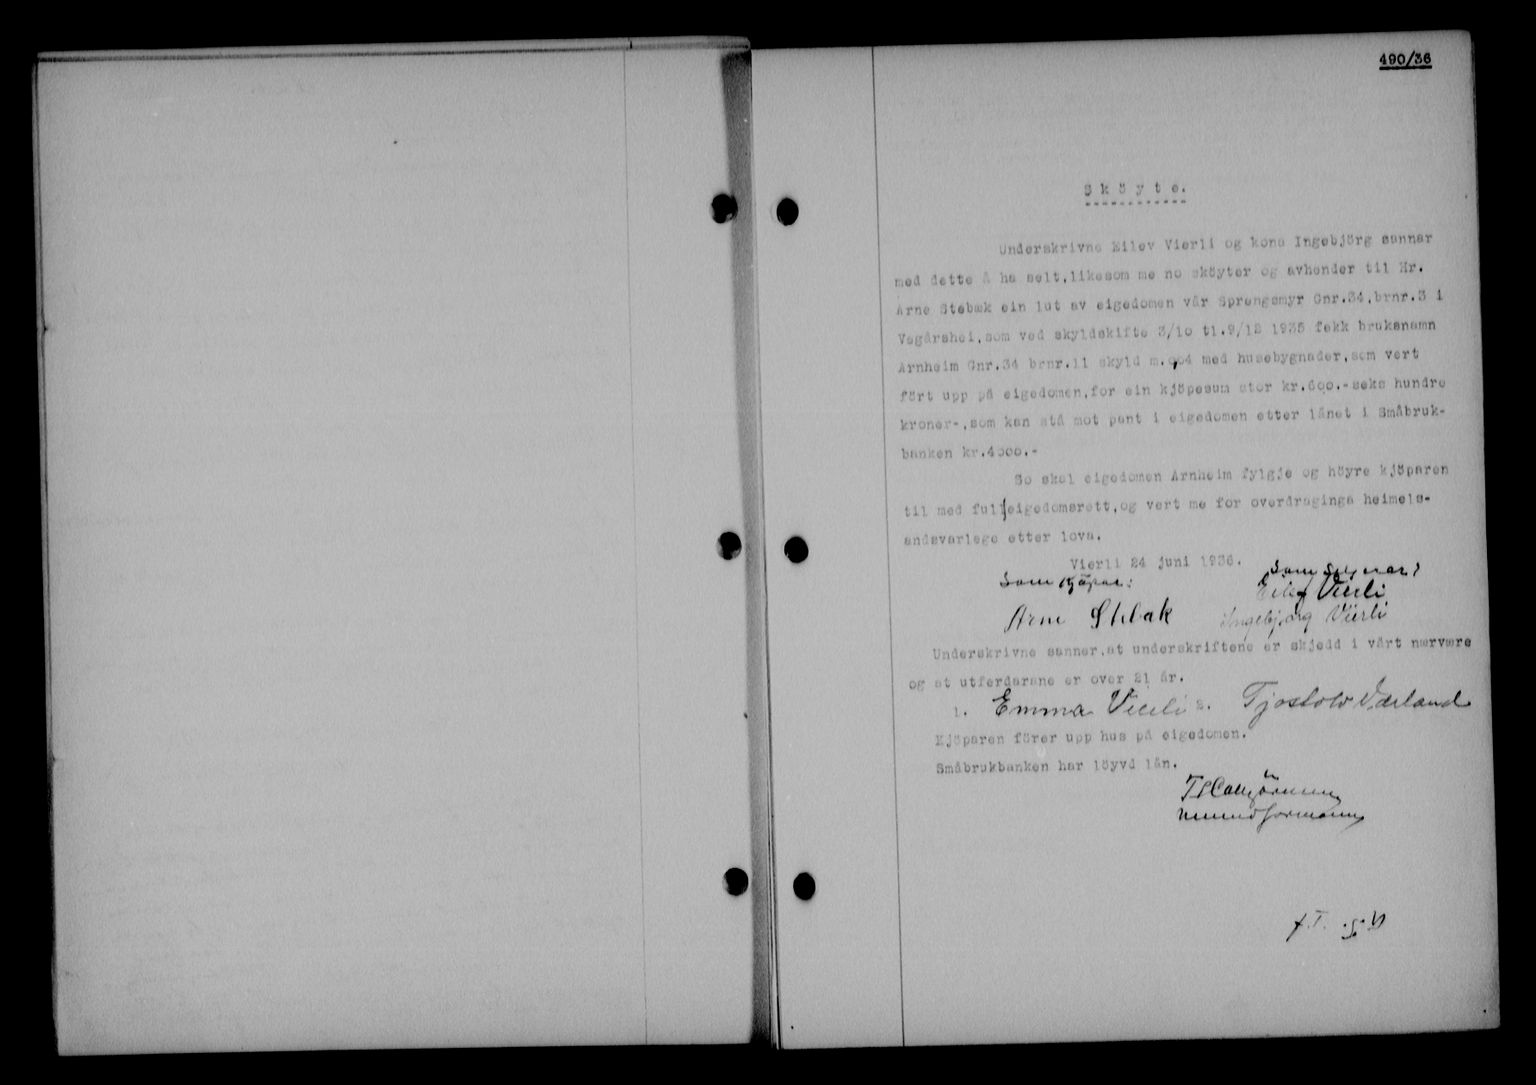 490/36
Sköyte.
Underskrivne Eilev Vierli og kona Ingebjörg sannar
med dette å ha selt, likesom me no sköyter og avhender til Hr.
Arne Stebæk ein lut av eigedomen vår Sprengsmyr Gnr.34, brnr.3 i
Vegårshei, som ved skyldskifte 3/10 tl.9/12 1935 fekk bruksnamn
Arnheim Gnr.34 brnr.11 skyld m.0,04 med husebygnader, som vert
fört upp på eigedomen, for ein kjöpesum stor kr.600.- seks hundre
kroner-, som kan stå mot pant i eigedomen etter lånet i Småbruk-
banken kr.4500.-
So skal eigedomen Arnheim fylgje og höyre kjöparen
til med full eigedomsrett, og vert me for overdraginga heimels-
andsvarlege etter lova.
Vierli 24 juni 1936.
Som kjöpar: Som seljarar:
Eilef Vierli
Arne Stebæk Ingebjørg Vierli
Underskrivne sanner, at underskriftene er skjedd i vårt nærvære
og at utferdarane er over 21 år.
1. Emma Vierli 2. Tjostolv
Kjöparen förer upp hus på eigedomen.
Småbrukbanken har löyvd lån.